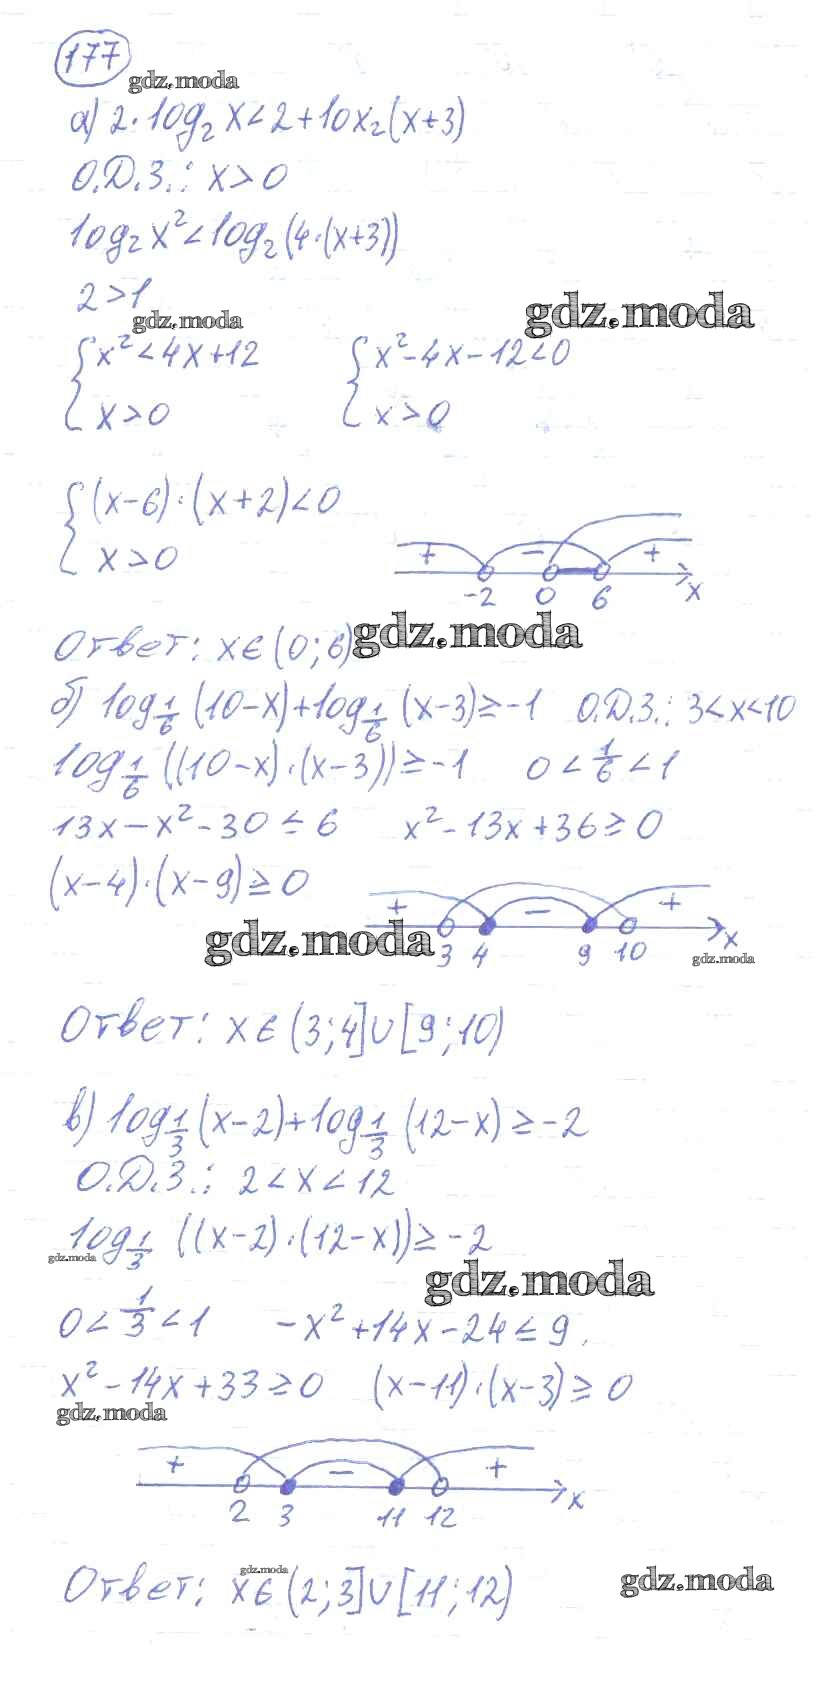 177
gdz.moda
а) 2·log₂ x < 2 + 10x₂(x+3)
О.Д.З.: x > 0
log₂ x² < log₂ (4·(x+3))
2 > 1
gdz.moda
gdz.moda
{ x² < 4x + 12 { x² - 4x - 12 < 0
{ x > 0 { x > 0
{ (x-6)·(x+2) < 0
{ x > 0
+ - +
-2 0 6 x
Ответ: x ∈ (0; 6)
gdz.moda
б) log_{1/6} (10-x) + log_{1/6} (x-3) ≥ -1 О.Д.З.: 3 < x < 10
log_{1/6} ((10-x)·(x-3)) ≥ -1 0 < 1/6 < 1
13x - x² - 30 ≤ 6 x² - 13x + 36 ≥ 0
(x-4)·(x-9) ≥ 0
+ - +
3 4 9 10 x
gdz.moda
gdz.moda
Ответ: x ∈ (3; 4] ∪ [9; 10)
в) log_{1/3} (x-2) + log_{1/3} (12-x) ≥ -2
О.Д.З.: 2 < x < 12
log_{1/3} ((x-2)·(12-x)) ≥ -2
gdz.moda
gdz.moda
0 < 1/3 < 1 -x² + 14x - 24 ≤ 9
x² - 14x + 33 ≥ 0 (x-11)·(x-3) ≥ 0
gdz.moda
+ - +
2 3 11 12 x
gdz.moda
Ответ: x ∈ (2; 3] ∪ [11; 12)
gdz.moda